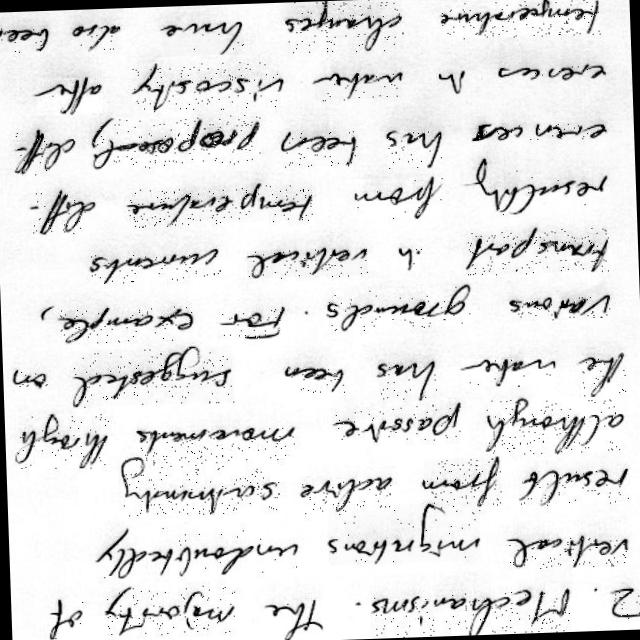 2. Mechanisms. The majority of
vertical migrations undoubtedly
result from active swimming
although passive movements through
the water has been suggested on
various grounds. For example,
transport in vertical currents
resulting from temperature diff-
erences has been proposed, diff-
erences in water viscosity after
temperature changes have also been